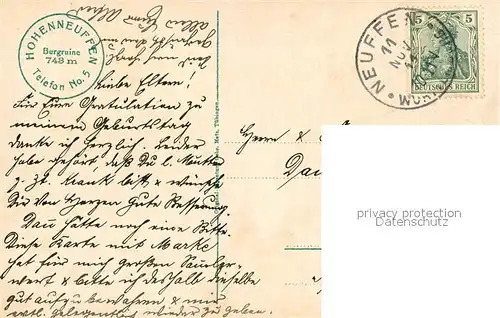 HOHENNEUFFEN
Burgruine
743 m
Telefon No. 5
Liebe Eltern!
Für Eure Gratulation zu
meinem Geburtstag
danke ich herzlich. Leider
habe gehört, daß Du l. Mutter
z. Zt. krank bist & wünsche
Dir von Herzen gute Besserung.
Dann hätte noch eine Bitte.
Diese Karte mit Marke
hat für mich großen Sammler-
wert & bitte ich deshalb dieselbe
gut aufzubewahren & mir
evtl. gelegentlich wieder zu geben.
NEUFFEN
11 NOV
WÜRTT
5 5
DEUTSCHES REICH
Herrn &
privacy protection
Datenschutz